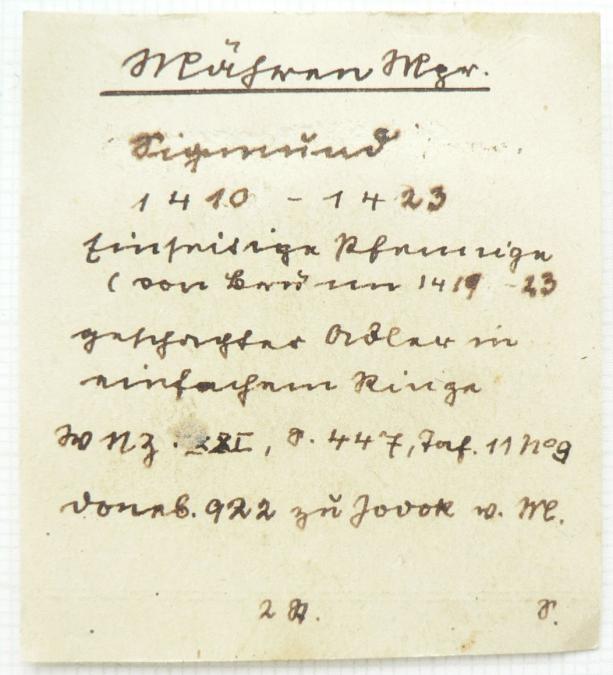 Mähren Mgr.
Sigmund
1410 - 1423
Einseitige Pfennige
( von Brünn 1419 - 23
geschachter Adler in
einfachem Ringe
W N Z. XXI, S. 447, Taf. 11 No 9
Doneb. 922 zu Jodok v. M.
2 St. S.